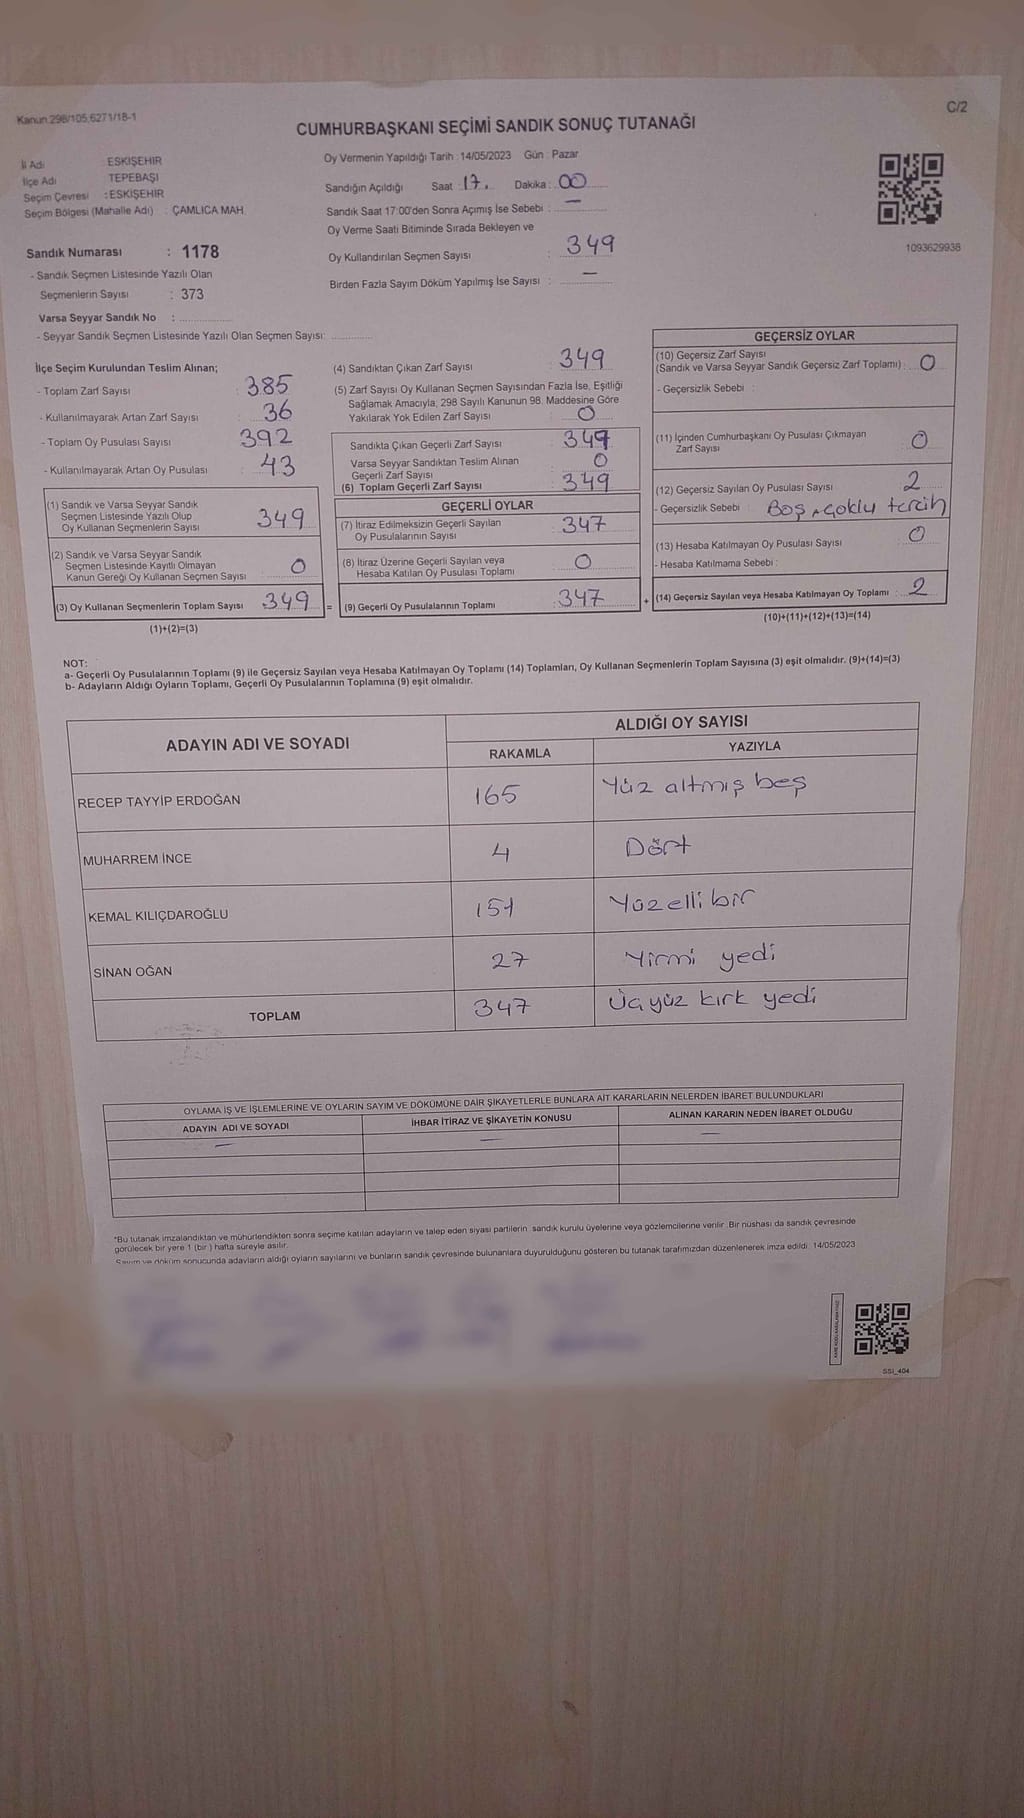 Kanun.298/105,6271/18-1
C/2
CUMHURBAŞKANI SEÇİMİ SANDIK SONUÇ TUTANAĞI
İl Adı : ESKİŞEHİR
İlçe Adı : TEPEBAŞI
Seçim Çevresi : ESKİŞEHİR
Seçim Bölgesi (Mahalle Adı) : ÇAMLICA MAH.
Oy Vermenin Yapıldığı Tarih : 14/05/2023 Gün : Pazar
Sandığın Açıldığı Saat : 17. Dakika : 00
Sandık Saat 17:00'den Sonra Açımış İse Sebebi : —
Oy Verme Saati Bitiminde Sırada Bekleyen ve
Oy Kullandırılan Seçmen Sayısı : 349
Birden Fazla Sayım Döküm Yapılmış İse Sayısı : —
1093629938
Sandık Numarası : 1178
- Sandık Seçmen Listesinde Yazılı Olan
Seçmenlerin Sayısı : 373
Varsa Seyyar Sandık No :
- Seyyar Sandık Seçmen Listesinde Yazılı Olan Seçmen Sayısı:
İlçe Seçim Kurulundan Teslim Alınan;
- Toplam Zarf Sayısı : 385
- Kullanılmayarak Artan Zarf Sayısı : 36
- Toplam Oy Pusulası Sayısı : 392
- Kullanılmayarak Artan Oy Pusulası : 43
(1) Sandık ve Varsa Seyyar Sandık
Seçmen Listesinde Yazılı Olup
Oy Kullanan Seçmenlerin Sayısı : 349
(2) Sandık ve Varsa Seyyar Sandık
Seçmen Listesinde Kayıtlı Olmayan
Kanun Gereği Oy Kullanan Seçmen Sayısı : 0
(3) Oy Kullanan Seçmenlerin Toplam Sayısı : 349
(1)+(2)=(3)
(4) Sandıktan Çıkan Zarf Sayısı : 349
(5) Zarf Sayısı Oy Kullanan Seçmen Sayısından Fazla İse, Eşitliği
Sağlamak Amacıyla, 298 Sayılı Kanunun 98. Maddesine Göre
Yakılarak Yok Edilen Zarf Sayısı : 0
Sandıkta Çıkan Geçerli Zarf Sayısı : 349
Varsa Seyyar Sandıktan Teslim Alınan
Geçerli Zarf Sayısı : 0
(6) Toplam Geçerli Zarf Sayısı : 349
GEÇERLİ OYLAR
(7) İtiraz Edilmeksizin Geçerli Sayılan
Oy Pusulalarının Sayısı : 347
(8) İtiraz Üzerine Geçerli Sayılan veya
Hesaba Katılan Oy Pusulası Toplamı : 0
= (9) Geçerli Oy Pusulalarının Toplamı : 347 +
GEÇERSİZ OYLAR
(10) Geçersiz Zarf Sayısı
(Sandık ve Varsa Seyyar Sandık Geçersiz Zarf Toplamı) : 0
- Geçersizlik Sebebi :
(11) İçinden Cumhurbaşkanı Oy Pusulası Çıkmayan
Zarf Sayısı : 0
(12) Geçersiz Sayılan Oy Pusulası Sayısı : 2
- Geçersizlik Sebebi : Boş, çoklu tercih
(13) Hesaba Katılmayan Oy Pusulası Sayısı : 0
- Hesaba Katılmama Sebebi :
(14) Geçersiz Sayılan veya Hesaba Katılmayan Oy Toplamı : 2
(10)+(11)+(12)+(13)=(14)
NOT:
a- Geçerli Oy Pusulalarının Toplamı (9) ile Geçersiz Sayılan veya Hesaba Katılmayan Oy Toplamı (14) Toplamları, Oy Kullanan Seçmenlerin Toplam Sayısına (3) eşit olmalıdır. (9)+(14)=(3)
b- Adayların Aldığı Oyların Toplamı, Geçerli Oy Pusulalarının Toplamına (9) eşit olmalıdır.
ADAYIN ADI VE SOYADI
ALDIĞI OY SAYISI
RAKAMLA YAZIYLA
RECEP TAYYİP ERDOĞAN 165 Yüz altmış beş
MUHARREM İNCE 4 Dört
KEMAL KILIÇDAROĞLU 151 Yüzelli bir
SİNAN OĞAN 27 Yirmi yedi
TOPLAM 347 Üçyüz kırk yedi
OYLAMA İŞ VE İŞLEMLERİNE VE OYLARIN SAYIM VE DÖKÜMÜNE DAİR ŞİKAYETLERLE BUNLARA AİT KARARLARIN NELERDEN İBARET BULUNDUKLARI
ADAYIN ADI VE SOYADI İHBAR İTİRAZ VE ŞİKAYETİN KONUSU ALINAN KARARIN NEDEN İBARET OLDUĞU
— — —
*Bu tutanak imzalandıktan ve mühürlendikten sonra seçime katılan adayların ve talep eden siyasi partilerin sandık kurulu üyelerine veya gözlemcilerine verilir. Bir nüshası da sandık çevresinde
görülecek bir yere 1 (bir) hafta süreyle asılır.
Sayım ve döküm sonucunda adayların aldığı oyların sayılarını ve bunların sandık çevresinde bulunanlara duyurulduğunu gösteren bu tutanak tarafımızdan düzenlenerek imza edildi. 14/05/2023
SSI_404